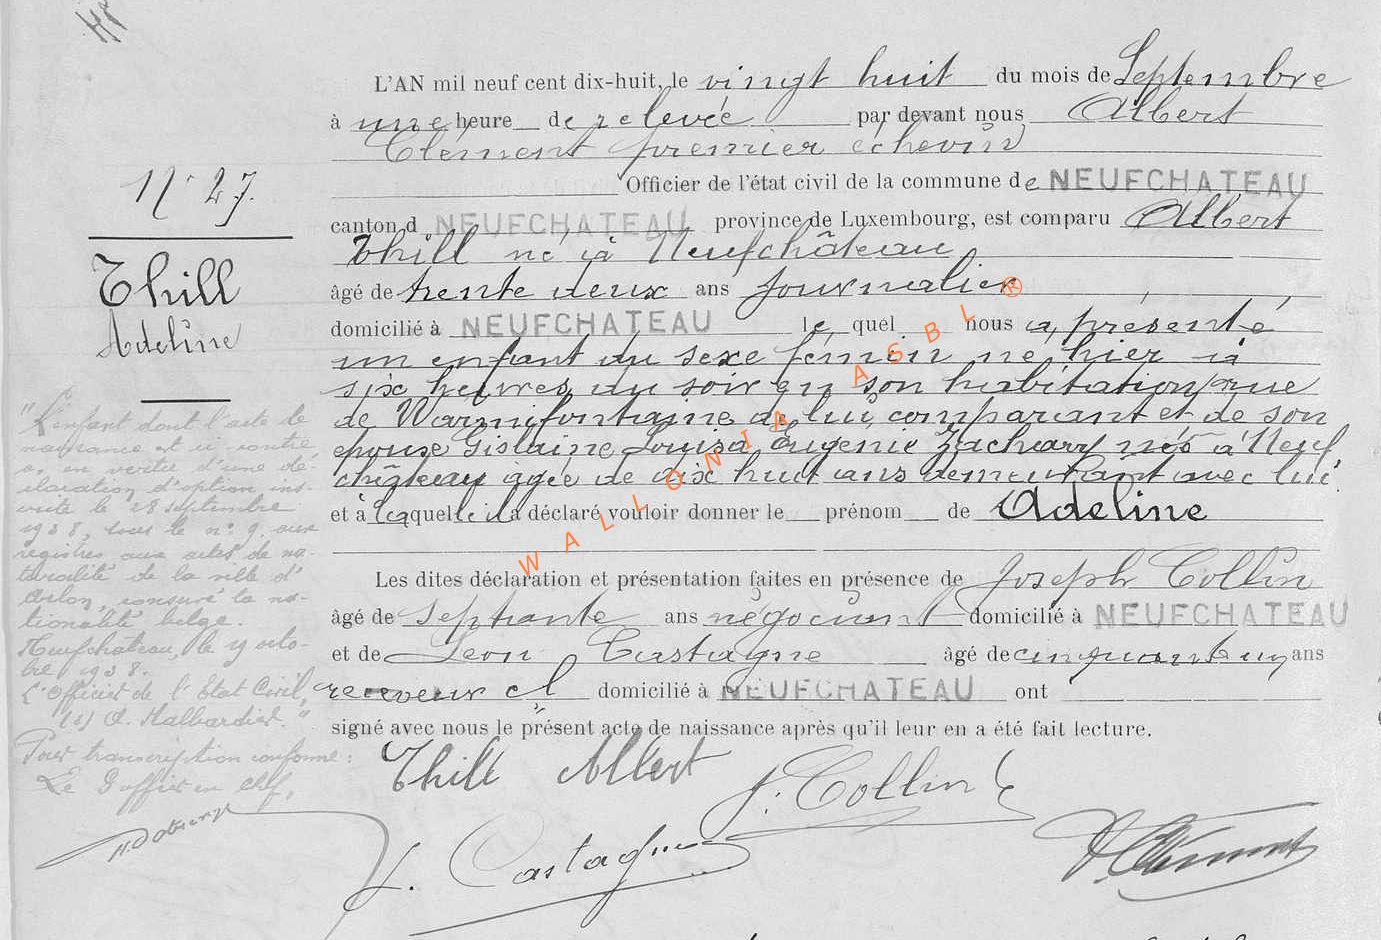 N° 27.
Thill
Adeline
"L'enfant dont l'acte de
naissance est ci-contre
a, en vertu d'une dé-
claration d'option ins-
crite le 28 septembre
1938, sous le n° 9. aux
registres aux actes de na-
turalité de la ville d'
Arlon, conservé la na-
tionalité belge.
Neufchâteau, le 19 octo-
bre 1938.
L'Officier de l'Etat Civil,
(s) A. Halbardier."
Pour transcription conforme:
Le Greffier en chef,
L'AN mil neuf cent dix-huit, le vingt huit du mois de Septembre
à une heure de relevée par devant nous Albert
Clément premier échevin
Officier de l'état civil de la commune de NEUFCHATEAU
canton d NEUFCHATEAU province de Luxembourg, est comparu Albert
Thill né à Neufchâteau
âgé de trente deux ans journalier
domicilié à NEUFCHATEAU le quel nous a présenté
un enfant du sexe féminin né hier à
six heures du soir en son habitation rue
de Warmifontaine de lui comparant et de son
épouse Gislaine Louisa Eugenie Zachary née à Neuf
château agée de dix huit ans demeurant avec lui
et à laquelle il a déclaré vouloir donner le prénom de Adeline
Les dites déclaration et présentation faites en présence de Joseph Collin
âgé de Septante ans négociant domicilié à NEUFCHATEAU
et de Léon Castagne âgé de cinquante un ans
receveur cl domicilié à NEUFCHATEAU ont
signé avec nous le présent acte de naissance après qu'il leur en a été fait lecture.
Thill Albert
J. Collin
L. Castagne
A. Clément
WALLONIA ASBL ®